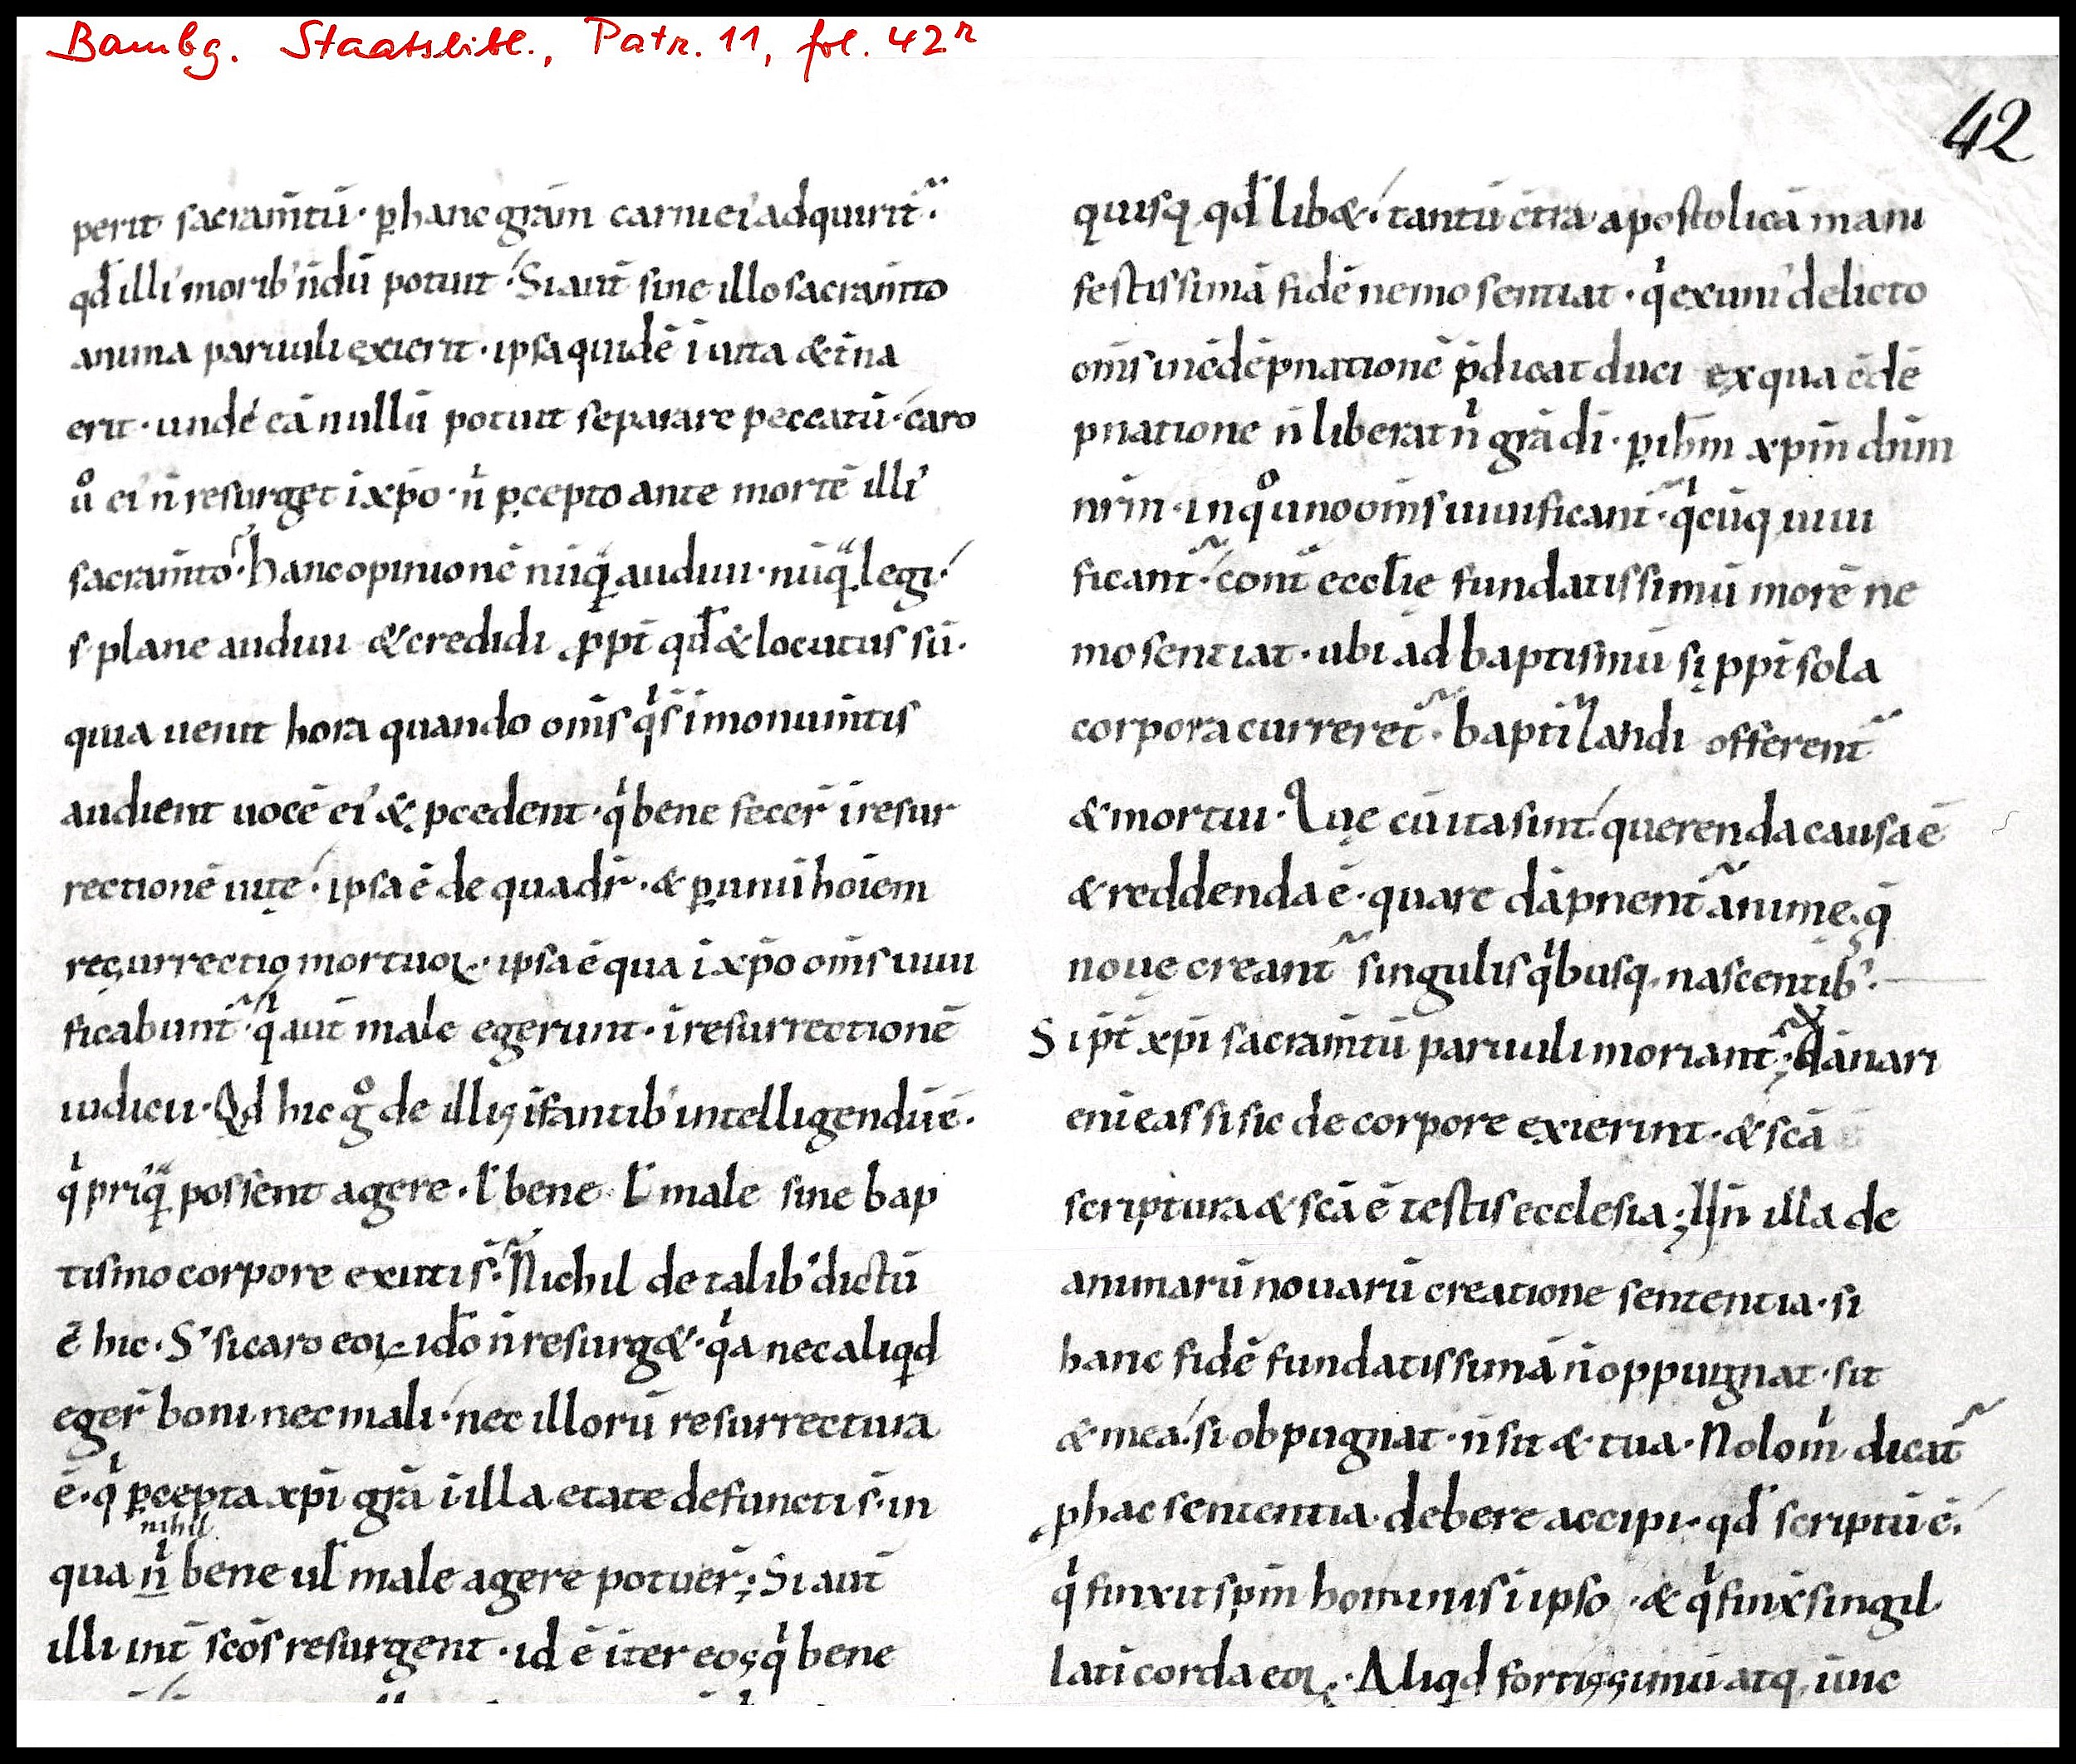 Bambg. Staatsbibl., Patr. 11, fol. 42r
42
perit sacram̄tū · ꝑ hanc grām carni ei' adquirit̃·
qd̄ illi' morib' n̄dū potuit · Si aut̄ sine illo sacram̄to
anima paruuli exierit · ipsa quidē ī uita æt̄na
erit · unde eā nullū potuit separare peccatū · caro
uͦ ei' n̄ resurget ī xp̄o · nͥ ꝑcepto ante mortē illi'
sacram̄to · hanc opinionē nūq̃ audiui · nūq̃ legi ·
s; plane audiui & credidi ꝓpt̄ qd̄ & locutus sū ·
quia uenit hora quando om̄s qͥ sī ī monum̄tis
audient uocē ei' & ꝓcedent · qͥ bene fecer̄ ī resur
rectionē uitę · ipsa ē de qua dr̄ · & ꝑ unū hoīem
resurrectio mortuoꝝ · ipsa ē qua ī xp̄o om̄s uiui
ficabunt̃ · qͥ aut̄ male egerunt · ī resurrectionē
iudicii · Qd hic gͦ de illis īfantib' intelligendū ē ·
qͥ priq̃ possent agere · l̄ bene l̄ male sine bap
tismo corpore exuti s̄ · Nichil de talib' dictū
ē hic · S; si caro eoꝝ idō n̄ resurg& · qͥa nec aliqd
eger̄ boni nec mali · nec illorū resurrectura
ē · qͥ ꝑcepta xp̄i grā ī illa etate defuncti s̄ · in
nihil
qua nͥ bene ul̄ male agere potuer̄ ; Si aut̄
illi int̄ scōs resurgent · id ē iter eos qͥ bene
quisq; qd̄ lib& · tantū ct̄ra apostolicā mani
festissimā fidē nemo sentiat · qͥ ex uni' delicto
om̄s in cōdēpnationē p̄dicat duci ex qua cōdē
pnatione n̄ liberat nͥ grā dī · ꝑ ih̄m xp̄m dn̄m
nr̄m · in qͦ uno om̄s uiuificant̃ · qͥcūq; uiui
ficant̃ · cont̄ ecclīę fundatissimū morē ne
mo sentiat · ubi ad baptismū si ꝓpt̄ sola
corpora curreret̃ · baptizandi offerent̃
& mortui · Quę cū ita sint · querenda causa ē
& reddenda ē · quare dāpnent̃ anime · q̄
nouę creant̃ singulis qͥbusq; nascentib' ·
Si p̄t̄ xp̄i sacram̄tū paruuli moriant̃ ; dānari
enī eas si sic de corpore exierint · & scā
scriptura & scā ē testis ecclesia ; Un̄ illa de
animarū nouarū creatione sententia · si
hanc fidē fundatissimā n̄ oppugnat · sit
& mea · si obpugnat · n̄ sit & tua · Nolo mͥ dicat̃
ꝓ hac sententia debere accipi · qd̄ scriptū ē ·
qͥ finxit sp̄m hominis ī ipso · & qͥ finx̄ singil
latī corda eoꝝ · Aliqd fortissimū atq; inuic